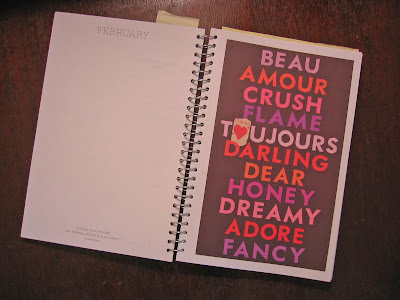 FEBRUARY
BEAU
AMOUR
CRUSH
FLAME
TOUJOURS
DARLING
DEAR
HONEY
DREAMY
ADORE
FANCY